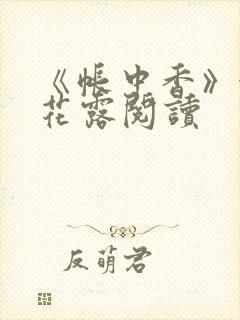 《帳中香》
花露閱讀
反萌君